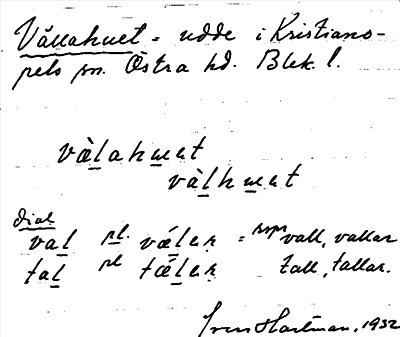 Vällahuet = udde i Kristiano-
pels sn. Östra hd. Blek. l.
væ̀lahuet
vælhuet
dial.
val pl. væ̀ler = resp. vall, vallar
tal pl tæ̀ler tall, tallar.
Sven Hartman, 1932